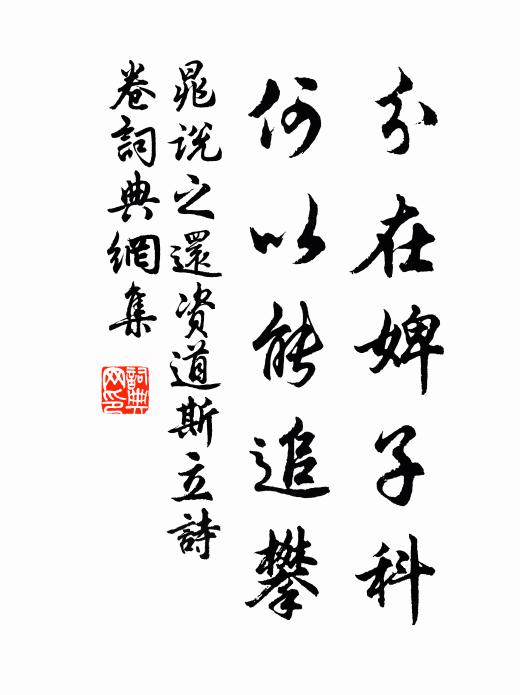 分在婢子科
何以能追攀
晁說之還资道斯立詩
卷詞典網集
詞典
网印